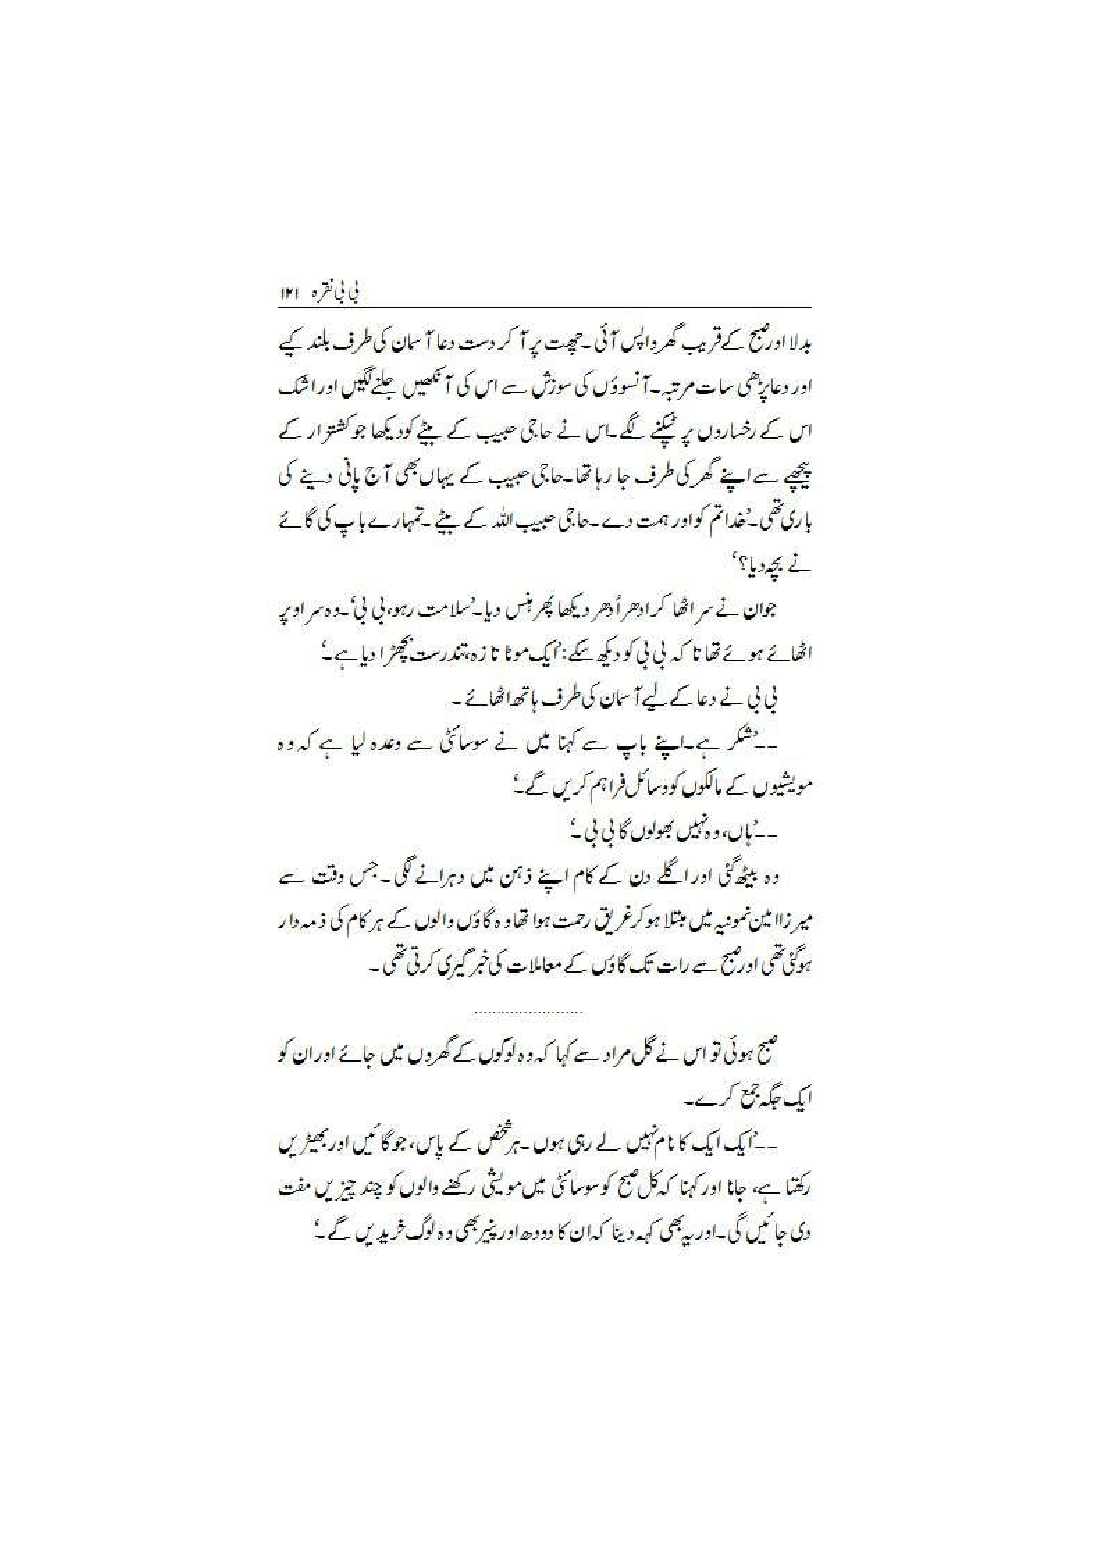 بی بی نقرہ ۱۲۱
بدلا اور صبح کے قریب گھر واپس آئی۔ چھت پر آ کر دست دعا آسمان کی طرف بلند کیے
اور دعا پڑھی سات مرتبہ۔ آنسوؤں کی سوزش سے اس کی آنکھیں جلنے لگیں اور اشک
اس کے رخساروں پر ٹپکنے لگے۔ اس نے حاجی حبیب کے بیٹے کو دیکھا جو کشتزار کے
پیچھے سے اپنے گھر کی طرف جا رہا تھا۔ حاجی حبیب کے یہاں بھی آج پانی دینے کی
باری تھی۔ ’خدا تم کو اور ہمت دے۔ حاجی حبیب اللہ کے بیٹے۔ تمہارے باپ کی گائے
نے بچہ دیا؟‘
جوان نے سر اٹھا کر ادھر اُدھر دیکھا پھر ہنس دیا۔ ’سلامت رہو، بی بی‘۔ وہ سر اوپر
اٹھائے ہوئے تھا تا کہ بی بی کو دیکھ سکے: ’ایک موٹا تازہ، تندرست بچھڑا دیا ہے۔‘
بی بی نے دعا کے لیے آسمان کی طرف ہاتھ اٹھائے۔
۔۔’شکر ہے۔ اپنے باپ سے کہنا میں نے سوسائٹی سے وعدہ لیا ہے کہ وہ
مویشیوں کے مالکوں کو وسائل فراہم کریں گے۔‘
۔۔’ہاں، وہ نہیں بھولوں گا بی بی۔‘
وہ بیٹھ گئی اور اگلے دن کے کام اپنے ذہن میں دہرانے لگی۔ جس وقت سے
میرزا امین نمونیہ میں مبتلا ہو کر غریق رحمت ہوا تھا وہ گاؤں والوں کے ہر کام کی ذمہ دار
ہو گئی تھی اور صبح سے رات تک گاؤں کے معاملات کی خبر گیری کرتی تھی۔
........................
صبح ہوئی تو اس نے گل مراد سے کہا کہ وہ لوگوں کے گھروں میں جائے اور ان کو
ایک جگہ جمع کرے۔
۔۔’ایک ایک کا نام نہیں لے رہی ہوں۔ ہر شخص کے پاس، جو گائیں اور بھیڑیں
رکھتا ہے، جانا اور کہنا کہ کل صبح کو سوسائٹی میں مویشی رکھنے والوں کو چند چیزیں مفت
دی جائیں گی۔ اور یہ بھی کہہ دینا کہ ان کا دودھ اور پنیر بھی وہ لوگ خریدیں گے۔‘